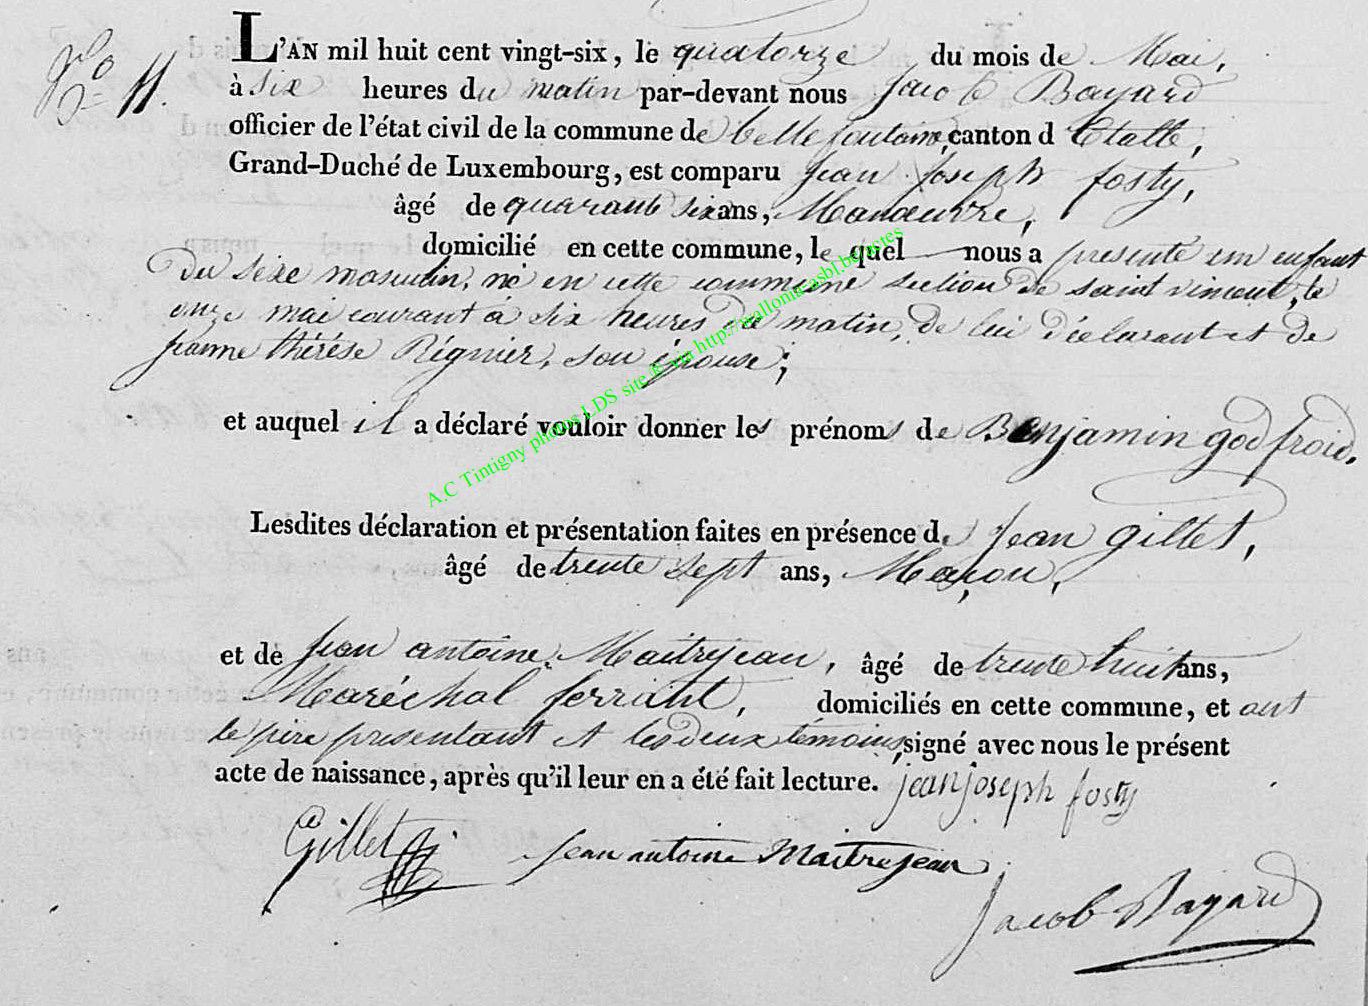 N.o 11.
L'AN mil huit cent vingt-six, le quatorze du mois de Mai,
à six heures du matin par-devant nous Jacob Bayard
officier de l'état civil de la commune de bellefontaine, canton d'Etalle,
Grand-Duché de Luxembourg, est comparu Jean Joseph fosty,
âgé de quarante six ans, Manœuvre,
domicilié en cette commune, le quel nous a presenté un enfant
du sexe masculin, né en cette commune section de saint vincent, le
onze mai courant à six heures de matin, de lui déclarant et de
jeanne thérése Régnier, son épouse;
et auquel il a déclaré vouloir donner les prénoms de Benjamin godfroid.
Lesdites déclaration et présentation faites en présence de Jean gillet,
âgé de trente sept ans, Maçon,
et de Jean antoine Maitrejean, âgé de trente huit ans,
Maréchal ferrant, domiciliés en cette commune, et ont
le père presentant et les deux temoins, signé avec nous le présent
acte de naissance, après qu'il leur en a été fait lecture. jean joseph fosty
Gillet Jean antoine Maitrejean
Jacob Bayard
A.C Tintigny photos LDS site via http://wallonica.asbl.be/actes